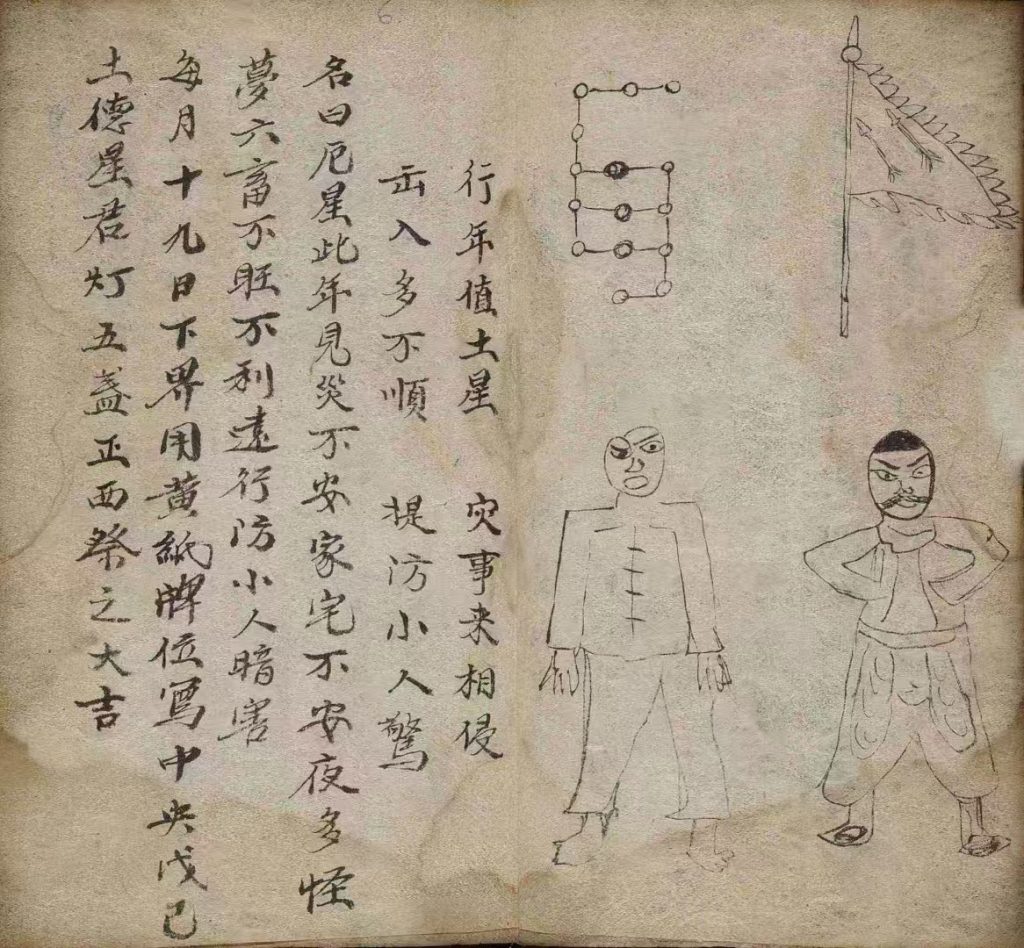 行年值土星 灾事来相侵
出入多不順 提防小人驚
名曰厄星此年見災不安家宅不安夜多怪
夢六畜不旺不利遠行防小人暗害
每月十九日下界用黄紙牌位寫中央戊己
土德星君灯五盏正西祭之大吉
6